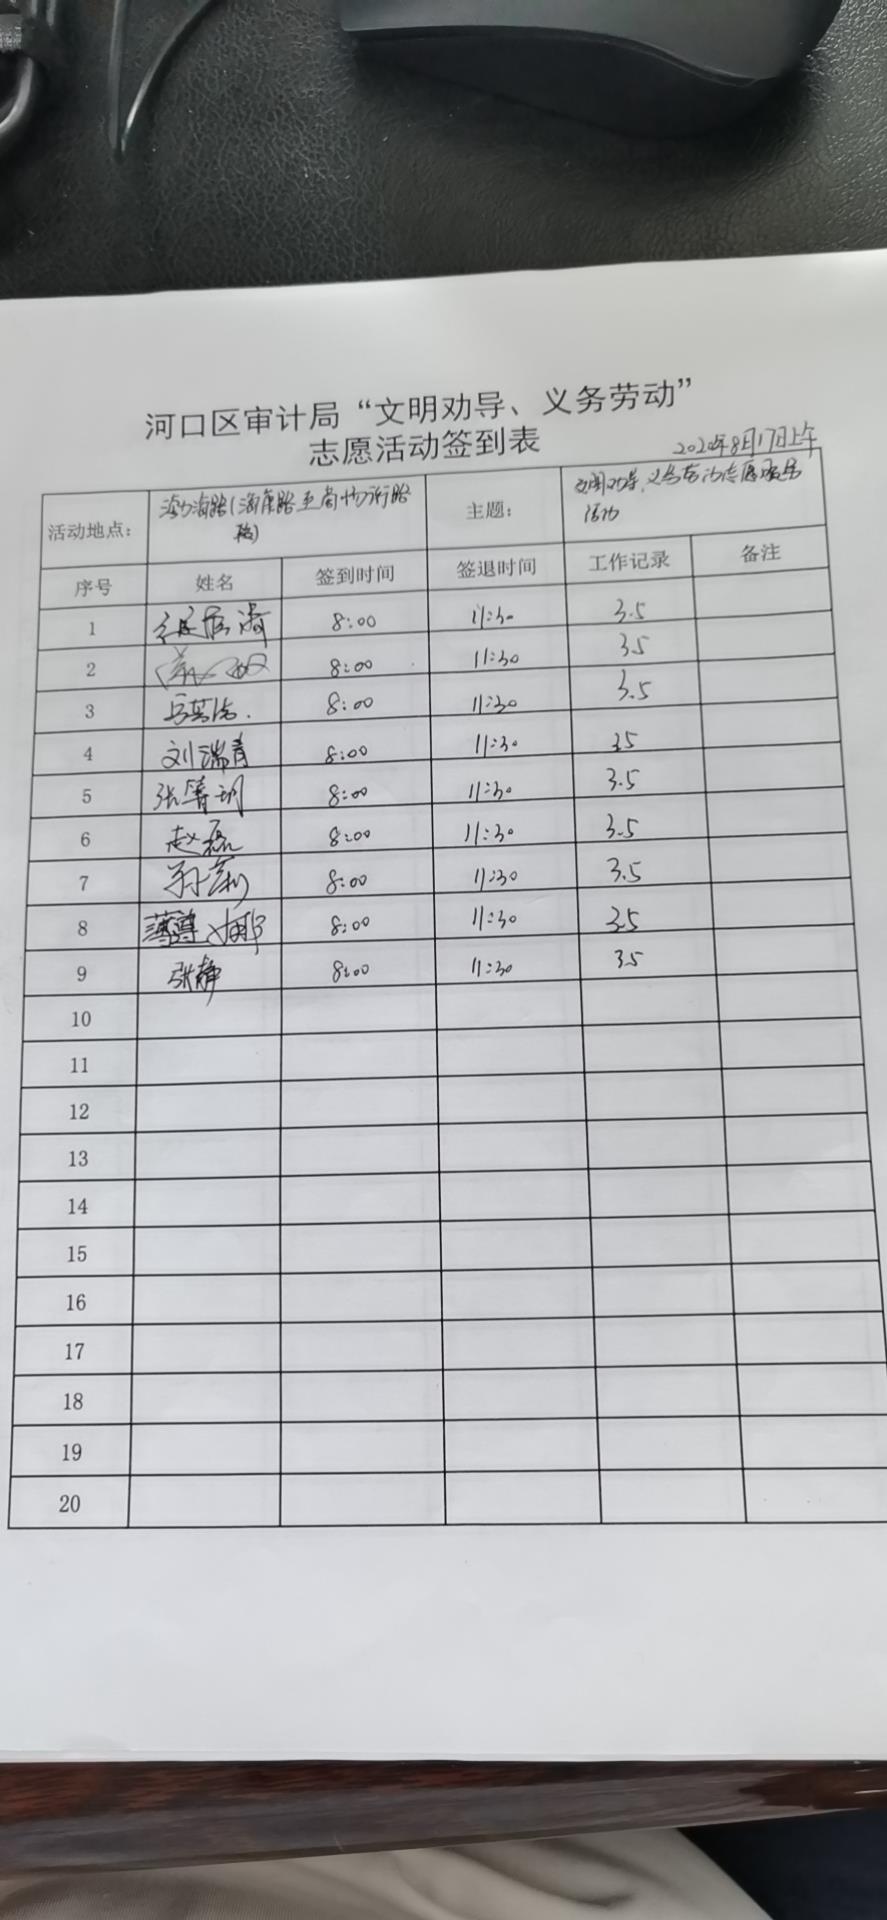 河口区审计局“文明劝导、义务劳动”
志愿活动签到表
2020年8月17日上午
活动地点： 主题： 文明劝导、义务劳动志愿服务
活动
序号 姓名 签到时间 签退时间 工作记录 备注
1 8:00 11:30 3.5
2 8:00 11:30 3.5
3 8:00 11:30 3.5
4 刘瑞青 8:00 11:30 3.5
5 8:00 11:30 3.5
6 赵磊 8:00 11:30 3.5
7 孙莉 8:00 11:30 3.5
8 8:00 11:30 3.5
9 张静 8:00 11:30 3.5
10
11
12
13
14
15
16
17
18
19
20